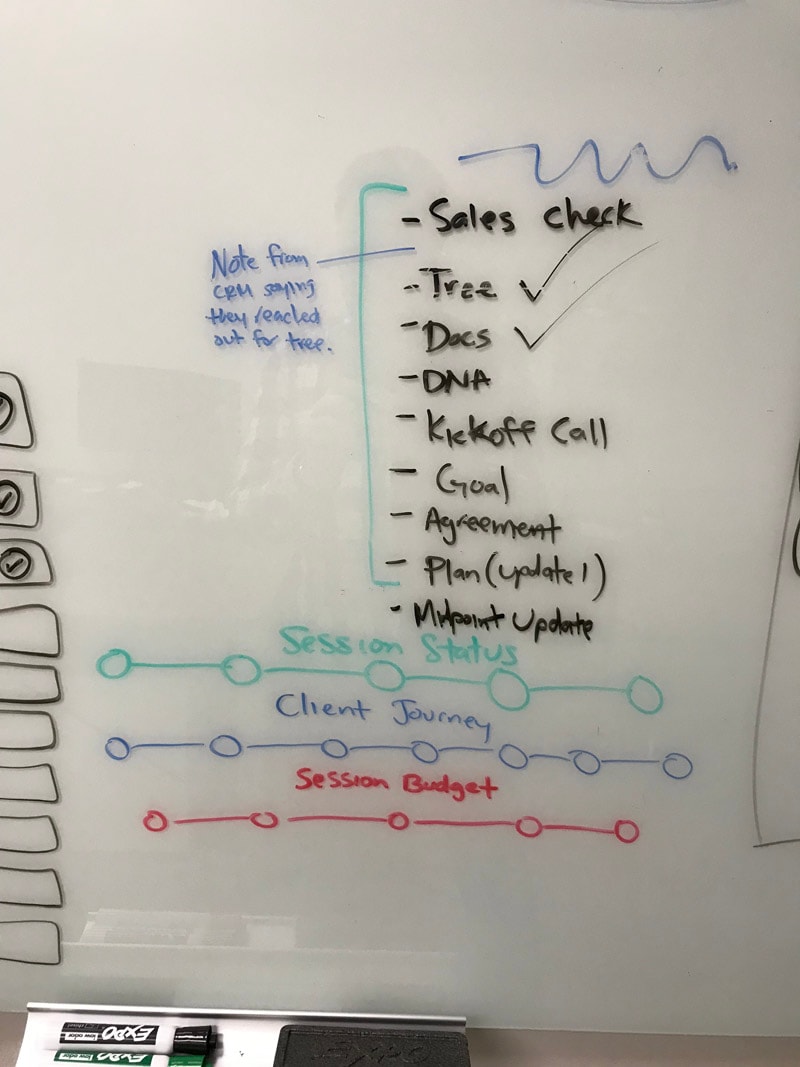 - Sales check
Note from
CRM saying
they reached
out for tree.
- Tree ✓
- Docs ✓
- DNA
- Kickoff Call
- Goal
- Agreement
- Plan (update 1)
- Midpoint Update
Session Status
Client Journey
Session Budget
EXPO
low odor
EXPO
low odor
EXPO